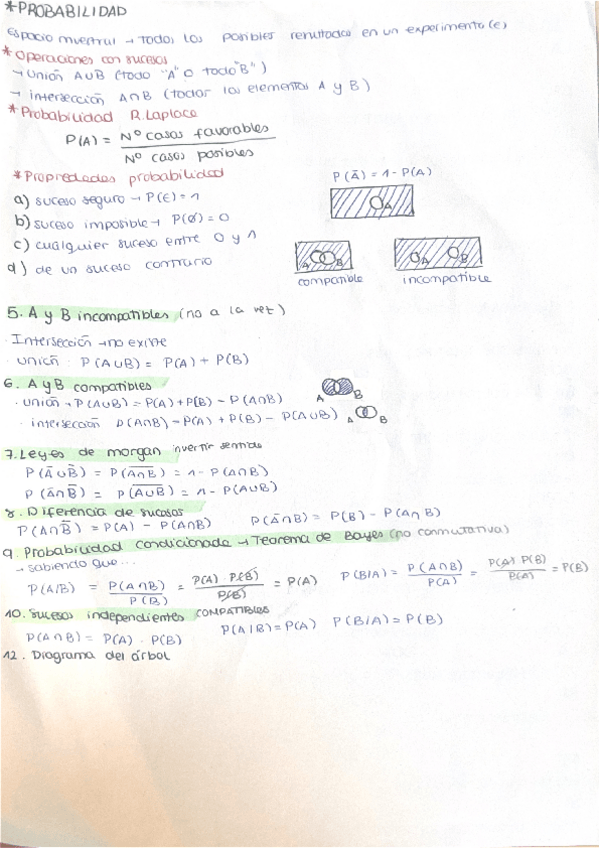 *PROBABILIDAD
Espacio muestral → Todos los posibles resultados en un experimento (E)
* Operaciones con sucesos
→ Unión A∪B (todo "A" o todo "B")
→ intersección A∩B (todos los elementos A y B)
* Probabilidad R.Laplace
P(A) = Nº casos favorables / Nº casos posibles
* Propiedades probabilidad
P(Ā) = 1 - P(A)
a) suceso seguro → P(E) = 1
A
b) suceso imposible → P(Ø) = 0
c) cualquier suceso entre 0 y 1
d) de un suceso contrario
A B
A B
compatible incompatible
5. A y B incompatibles (no a la vez)
· Intersección → no existe
· unión · P(A∪B) = P(A) + P(B)
6. A y B compatibles
A B
· unión → P(A∪B) = P(A) + P(B) - P(A∩B)
· intersección P(A∩B) - P(A) + P(B) - P(A∪B) A B
7. Leyes de morgan invertir sentido
P(Ā∪B̄) = P(A∩B)‾ = 1 - P(A∩B)
P(Ā∩B̄) = P(A∪B)‾ = 1 - P(A∪B)
8. Diferencia de sucesos
P(A∩B̄) = P(A) - P(A∩B) P(Ā∩B) = P(B) - P(A∩B)
9. Probabilidad condicionada → Teorema de Bayes (no conmutativa)
→ sabiendo que...
P(A/B) = P(A∩B) / P(B) = P(A) · P(B) / P(B) = P(A) P(B/A) = P(A∩B) / P(A) = P(A) P(B) / P(A) = P(B)
10. Sucesos independientes COMPATIBLES
P(A∩B) = P(A) · P(B) P(A/B) = P(A) P(B/A) = P(B)
12. Diagrama del árbol